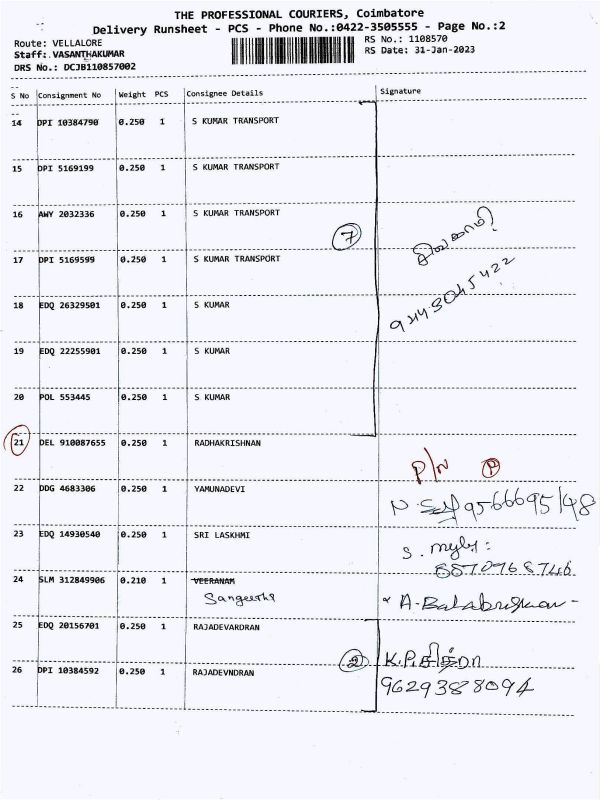 THE PROFESSIONAL COURIERS, Coimbatore
Delivery Runsheet - PCS - Phone No.:0422-3505555 - Page No.:2
Route: VELLALORE
RS No.: 1108570
Staff: VASANTHAKUMAR
RS Date: 31-Jan-2023
DRS No.: DCJB110857002
S No Consignment No Weight PCS Consignee Details Signature
14 DPI 10384790 0.250 1 S KUMAR TRANSPORT
15 DPI 5169199 0.250 1 S KUMAR TRANSPORT
16 AWY 2032336 0.250 1 S KUMAR TRANSPORT
7
சிவகாமி
17 DPI 5169599 0.250 1 S KUMAR TRANSPORT
18 EDQ 26329501 0.250 1 S KUMAR
19 EDQ 22255901 0.250 1 S KUMAR
20 POL 553445 0.250 1 S KUMAR
21 DEL 910087655 0.250 1 RADHAKRISHNAN
P/N P
22 DDG 4683306 0.250 1 YAMUNADEVI
23 EDQ 14930540 0.250 1 SRI LASKHMI
24 SLM 312849906 0.210 1 VEERANAM
25 EDQ 20156701 0.250 1 RAJADEVARDRAN
2 K.P.சித்ரா
26 DPI 10384592 0.250 1 RAJADEVNDRAN
9629388094